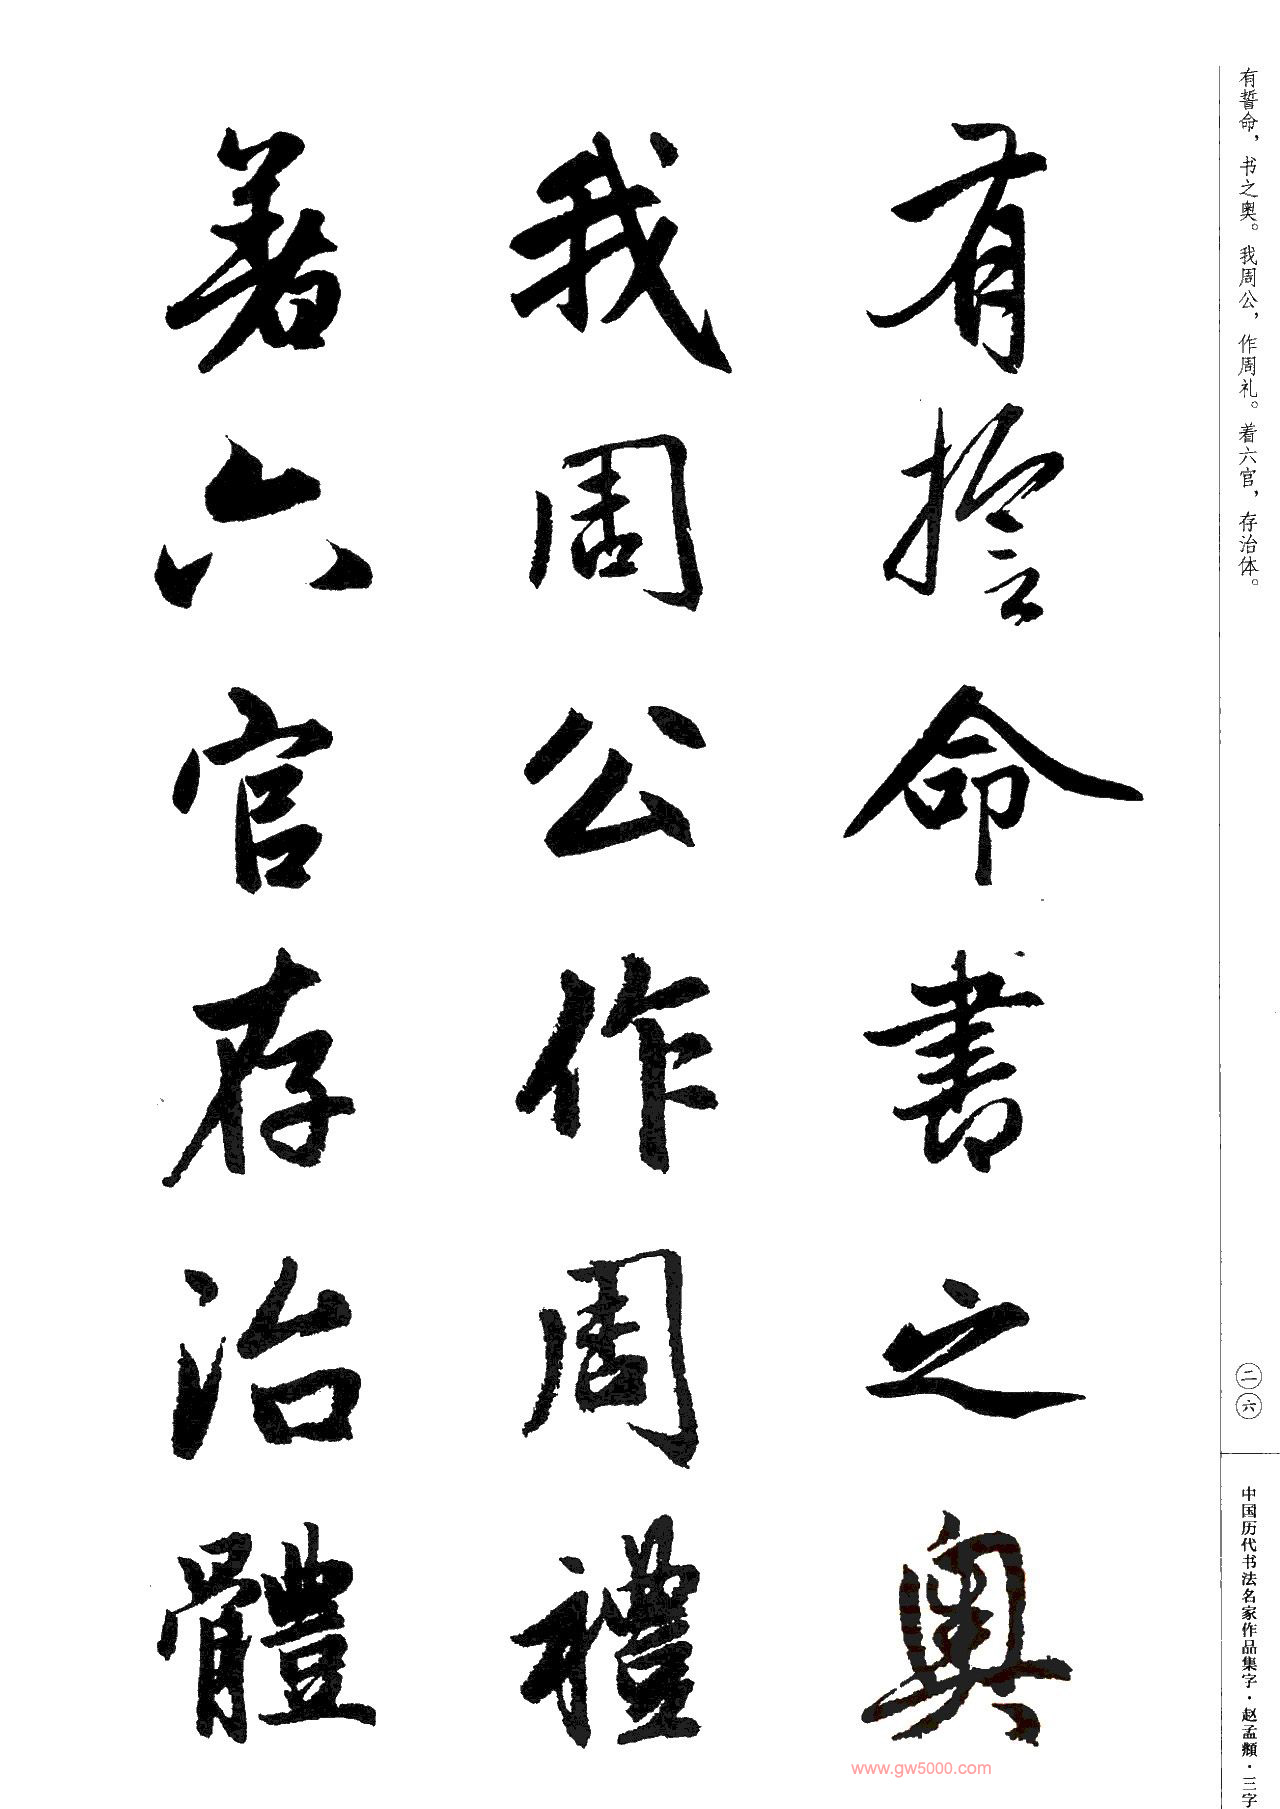 有誓命，书之奥。我周公，作周礼。着六官，存治体。
二六
中国历代书法名家作品集字·赵孟頫·三字
有誓命書之奥
我周公作周禮
著六官存治體
www.gw5000.com